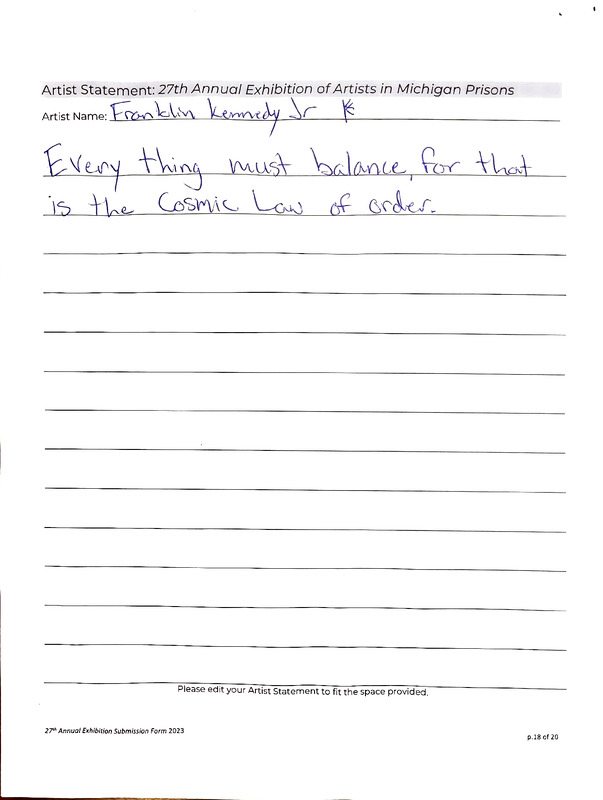 Artist Statement: 27th Annual Exhibition of Artists in Michigan Prisons
Artist Name: Franklin Kennedy Jr
Every thing must balance, for that
is the Cosmic Law of order.
Please edit your Artist Statement to fit the space provided.
27th Annual Exhibition Submission Form 2023
p.18 of 20